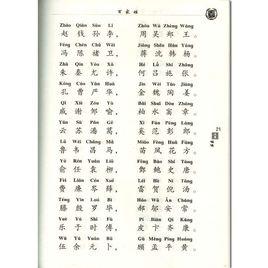 百家姓
Zhào Qián Sūn Lǐ Zhōu Wú Zhèng Wáng
赵钱孙李，周吴郑王。
Féng Chén Chǔ Wèi Jiǎng Shěn Hán Yáng
冯陈褚卫，蒋沈韩杨。
Zhū Qín Yóu Xǔ Hé Lǚ Shī Zhāng
朱秦尤许，何吕施张。
Kǒng Cáo Yán Huà Jīn Wèi Táo Jiāng
孔曹严华，金魏陶姜。
Qī Xiè Zōu Yù Bǎi Shuǐ Dòu Zhāng
戚谢邹喻，柏水窦章。
Yún Sū Pān Gě Xī Fàn Péng Láng
云苏潘葛，奚范彭郎。
Lǔ Wéi Chāng Mǎ Miáo Fèng Huā Fāng
鲁韦昌马，苗凤花方。
Yú Rén Yuán Liǔ Fēng Bào Shǐ Táng
俞任袁柳，酆鲍史唐。
Fèi Lián Cén Xuē Léi Hè Ní Tāng
费廉岑薛，雷贺倪汤。
Téng Yīn Luó Bì Hǎo Wū Ān Cháng
滕殷罗毕，郝邬安常。
Yuè Yú Shí Fù Pí Biàn Qí Kāng
乐于时傅，皮卞齐康。
Wǔ Yú Yuán Bǔ Gù Mèng Píng Huáng
伍余元卜，顾孟平黄。